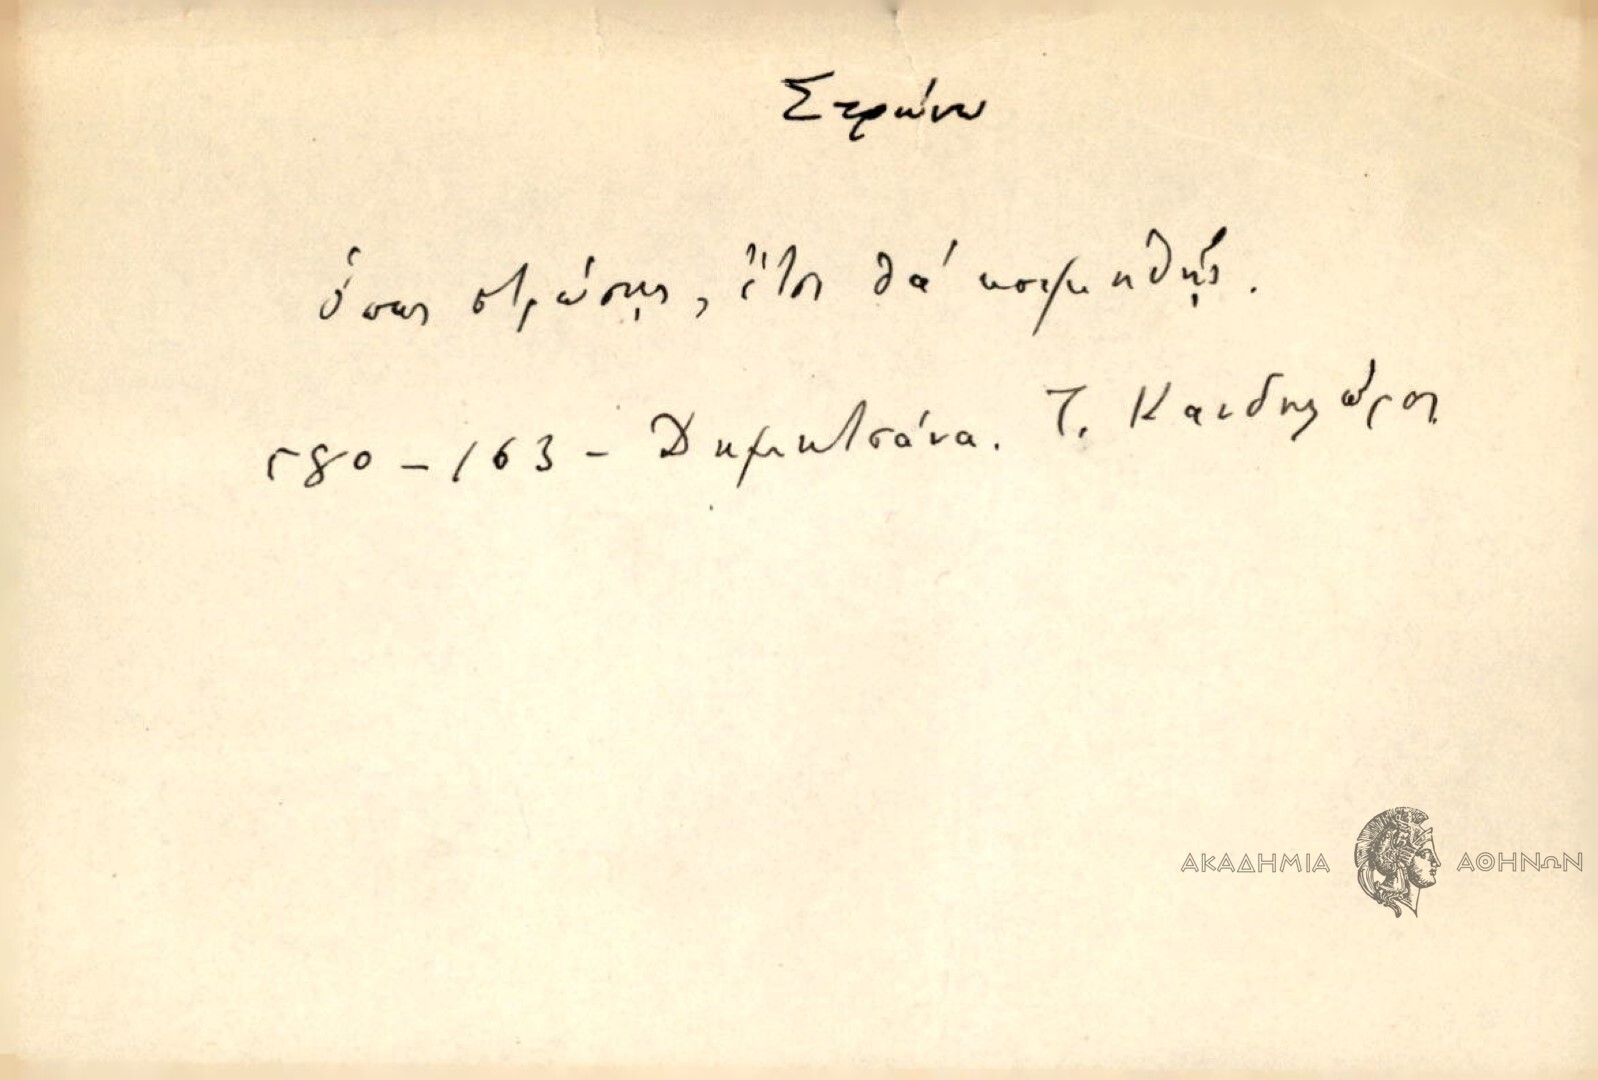 Στρώνω
ὅπως στρώσῃς, ἔτσι θὰ κοιμηθῇς.
580 - 163 - Δημητσάνα. Τ. Κανδηλώρος
ΑΚΑΔΗΜΙΑ ΑΘΗΝΩΝ